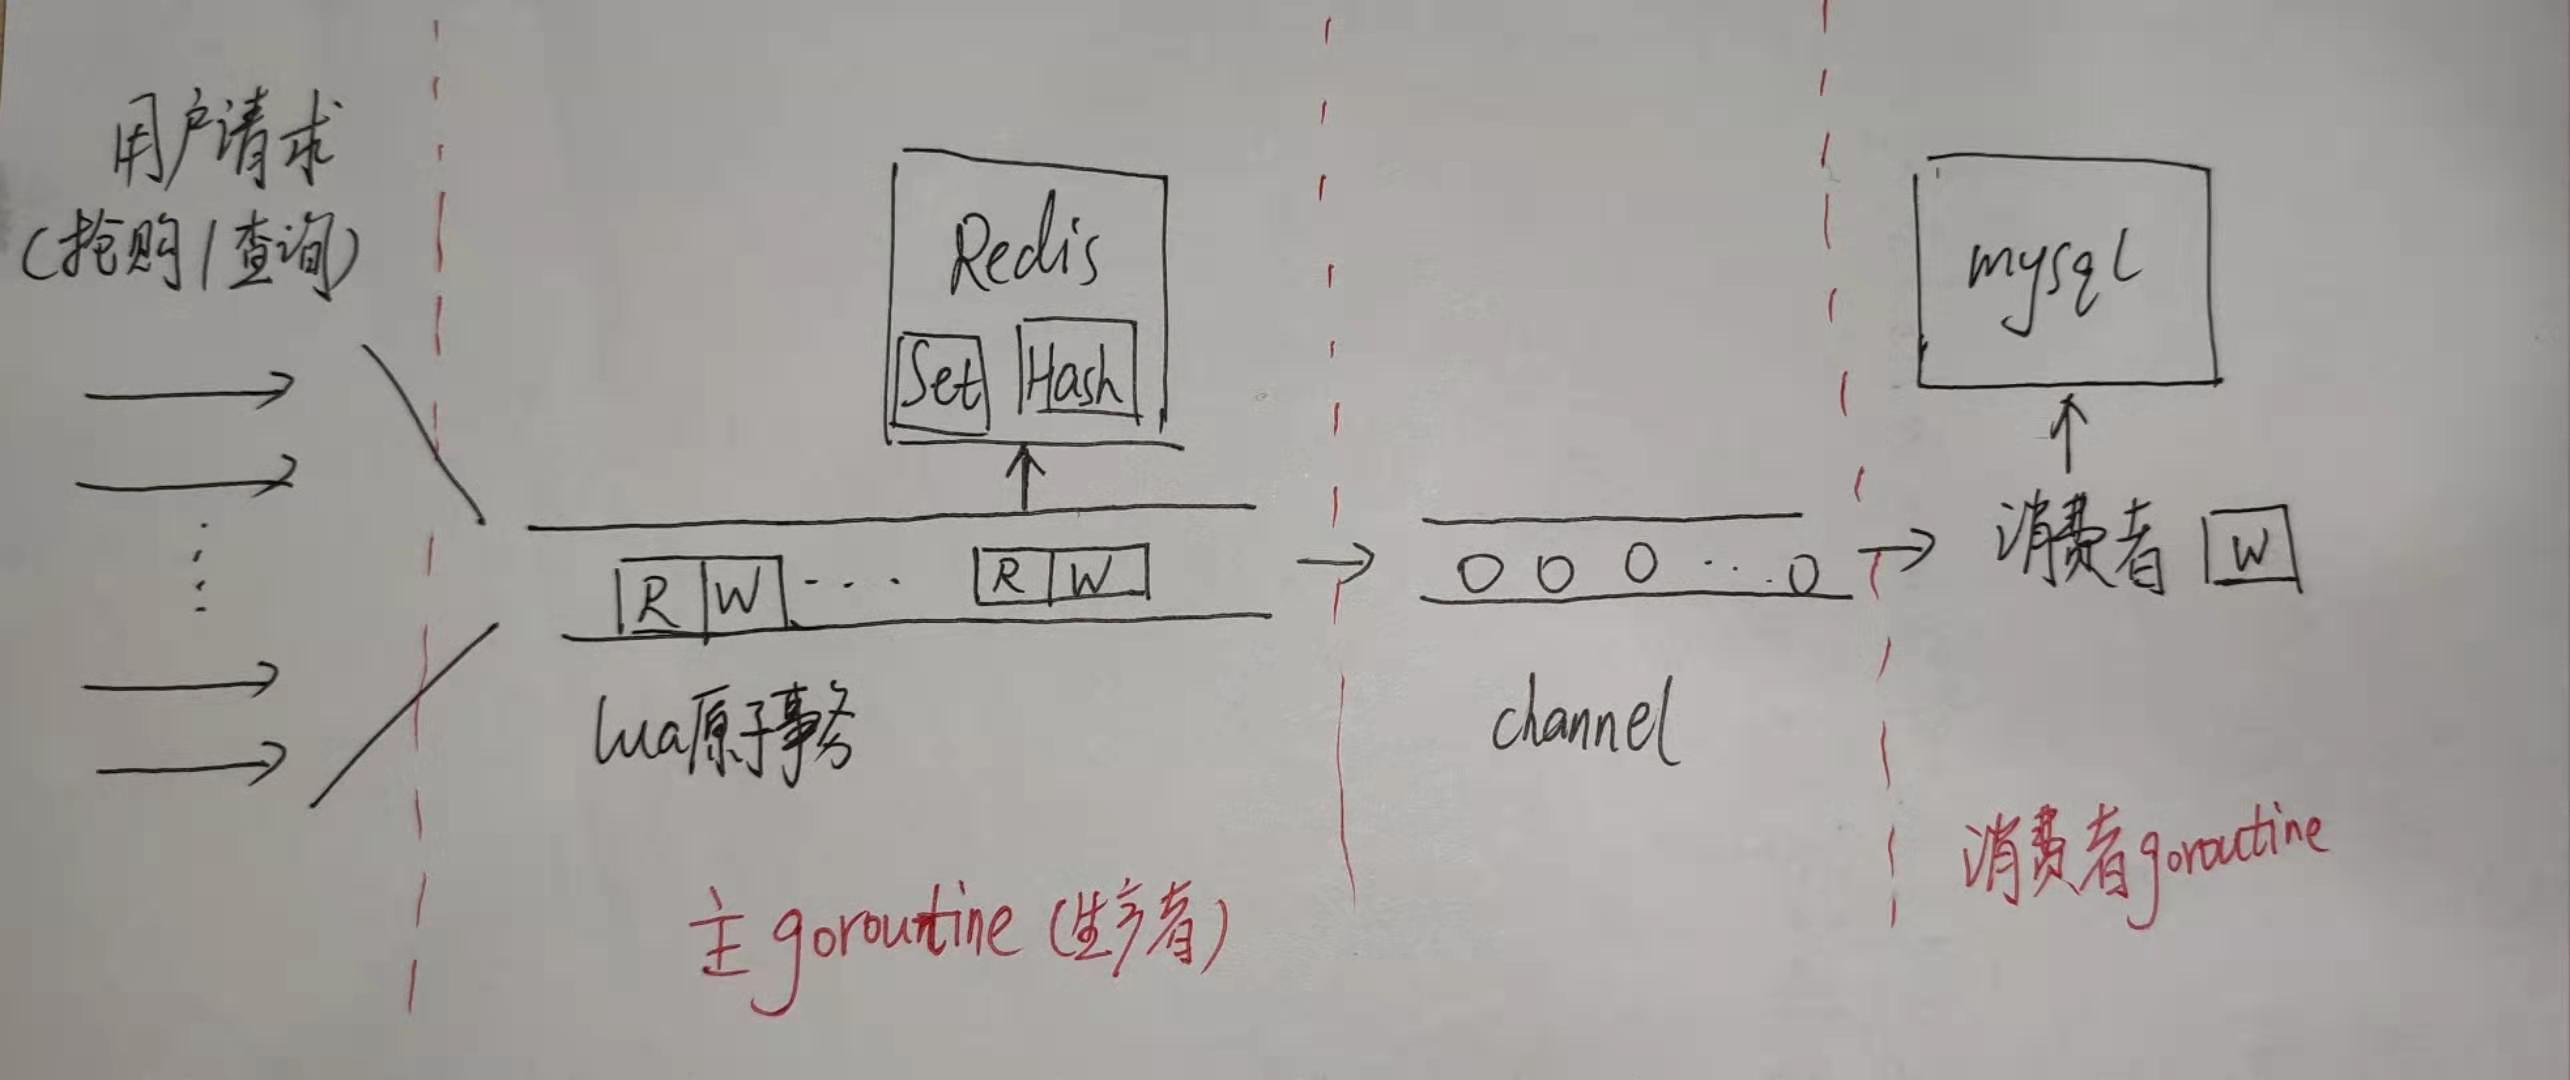 用户请求
(抢购/查询)
Redis
Set
Hash
R W .... R W
lua原子事务
主goroutine(生产者)
channel
mysql
消费者 W
消费者goroutine